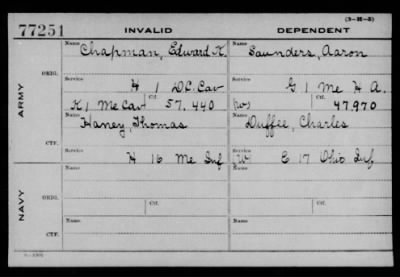 (3-II-5)
77251 INVALID DEPENDENT
Name Chapman, Edward K. Name Saunders, Aaron
ARMY
ORIG. Service H 1 D.C. Cav Service G 1 Me H A.
K 1 Me Cav Ctf. 57.440 (W) Ctf. 47.970
Name Haney, Thomas Name Duffee, Charles
CTF. Service H 16 Me Inf (W) Service E 17 Ohio Inf
NAVY
Name Name
ORIG.
Service Ctf. Service Ctf.
Name Name
CTF.